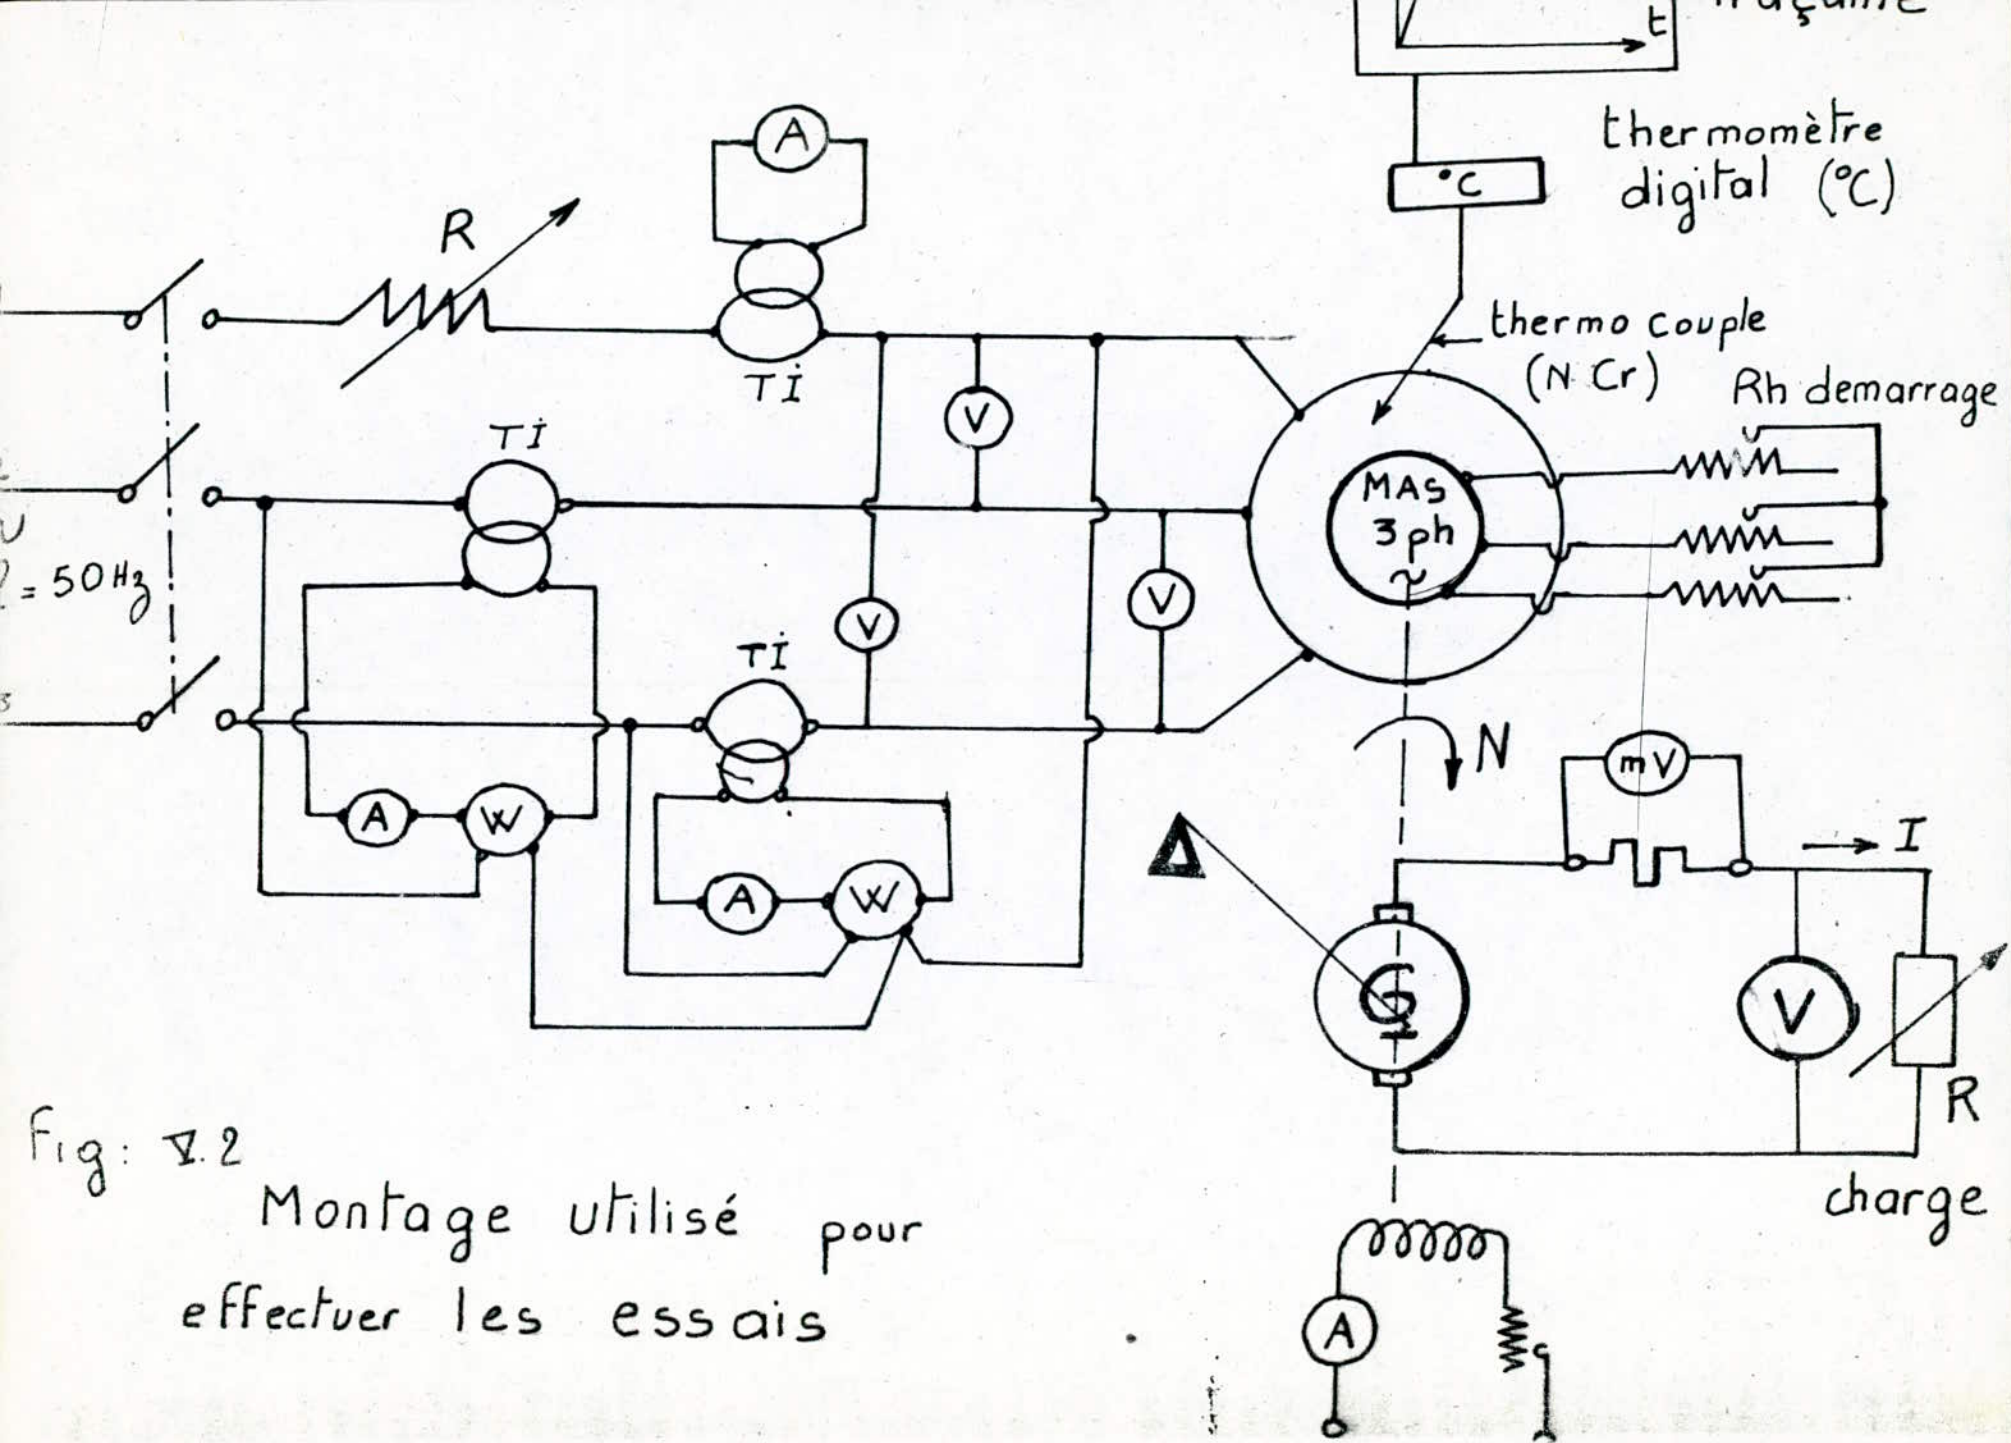 t
thermomètre
digital (°C)
°C
A
R
TI
thermo couple
(N Cr)
Rh demarrage
V
TI
MAS
3 ph
~
= 50 Hz
V
V
TI
N
mV
I
A
W
A
W
G
V
R
charge
Fig: V.2
Montage utilisé pour
effectuer les essais
A